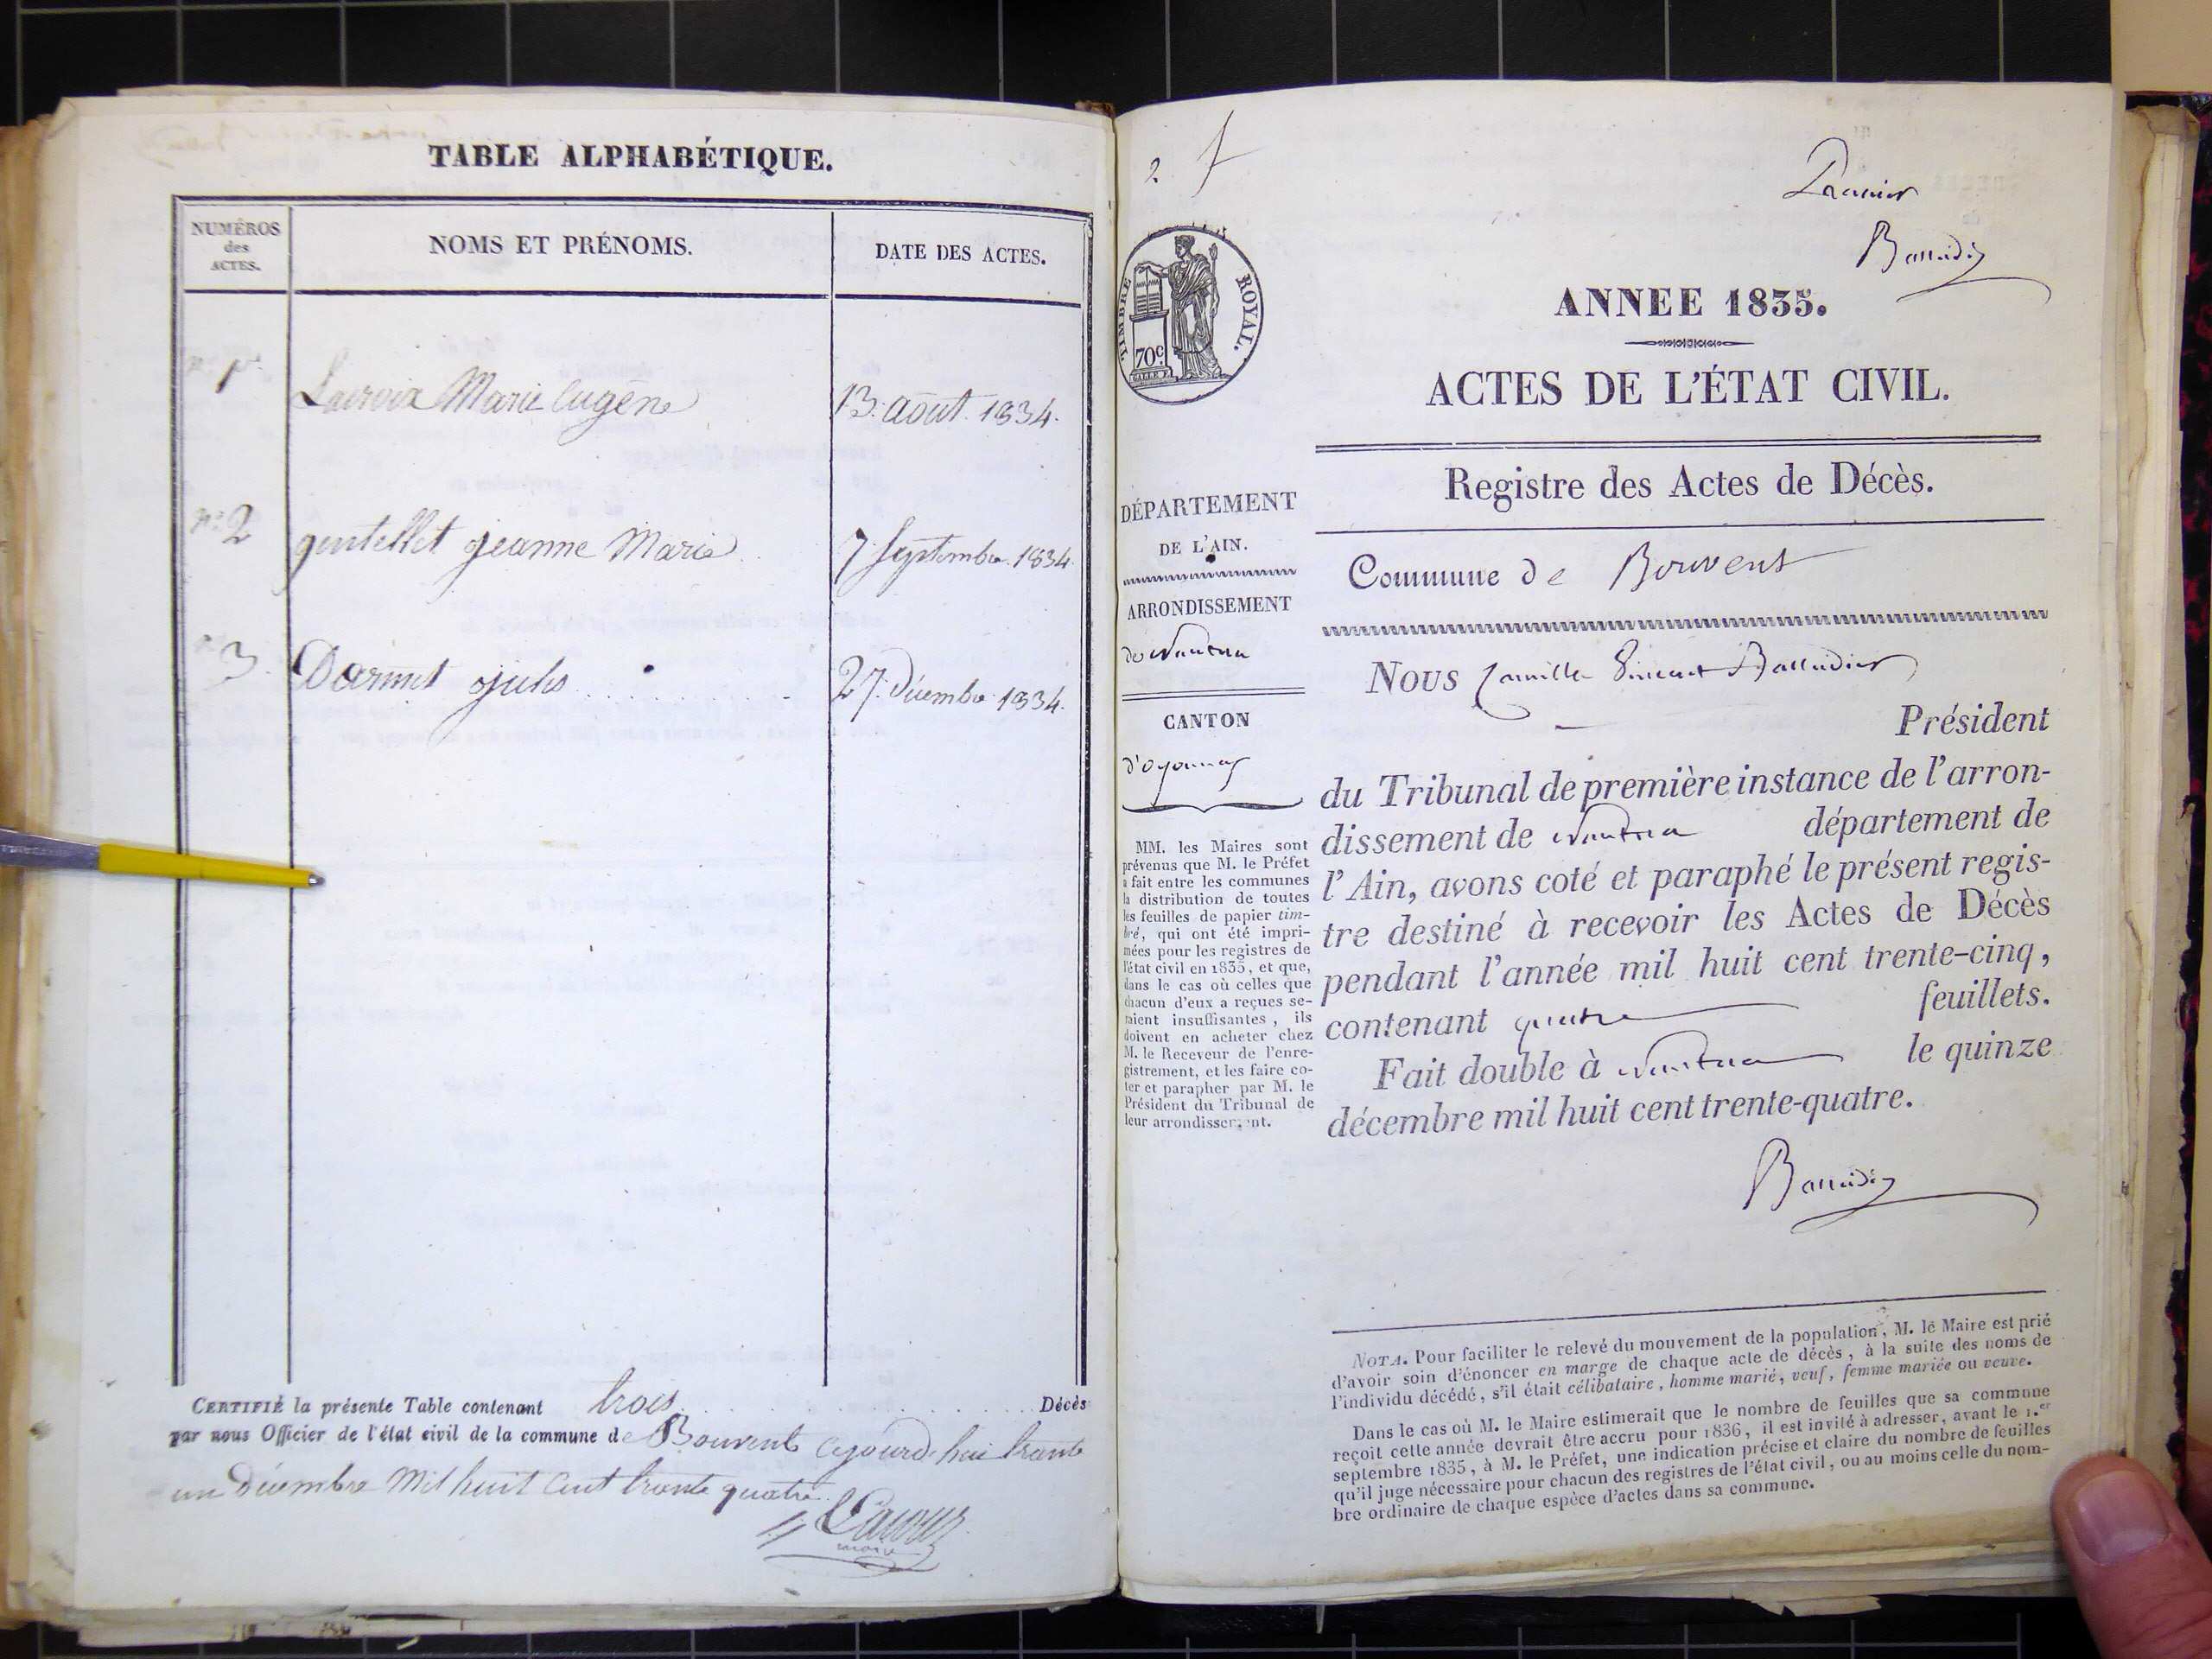 TABLE ALPHABÉTIQUE.
NUMÉROS
des
ACTES.
NOMS ET PRÉNOMS.
DATE DES ACTES.
n.º 1er
Lacroix Marie Eugène
13. août. 1834.
n.º 2
gentellet jeanne Marie
7 Septembre 1834
n.º 3.
Darmet jules
27. Décembre 1834.
CERTIFIÉ la présente Table contenant trois Décès
par nous Officier de l'état civil de la commune de Bouvent ajourd'hui trante
un Décembre Mil huit Cent trante quatre.
maire
2
ANNEE 1835.
ACTES DE L'ÉTAT CIVIL.
TIMBRE ROYAL.
70c
Registre des Actes de Décès.
DÉPARTEMENT
DE L'AIN.
ARRONDISSEMENT
de Nantua
CANTON
d'oyonnax
MM. les Maires sont
prévenus que M. le Préfet
a fait entre les communes
la distribution de toutes
les feuilles de papier tim-
bré, qui ont été impri-
mées pour les registres de
l'état civil en 1835, et que,
dans le cas où celles que
chacun d'eux a reçues se-
raient insuffisantes, ils
doivent en acheter chez
M. le Receveur de l'enre-
gistrement, et les faire co-
ter et parapher par M. le
Président du Tribunal de
leur arrondissement.
Commune de Bouvent
Nous Camille Vincent Balleidier
Président
du Tribunal de première instance de l'arron-
dissement de Nantua département de
l'Ain, avons coté et paraphé le présent regis-
tre destiné à recevoir les Actes de Décès
pendant l'année mil huit cent trente-cinq,
contenant quatre feuillets.
Fait double à Nantua le quinze
décembre mil huit cent trente-quatre.
NOTA. Pour faciliter le relevé du mouvement de la population, M. le Maire est prié
d'avoir soin d'énoncer en marge de chaque acte de décès, à la suite des noms de
l'individu décédé, s'il était célibataire, homme marié, veuf, femme mariée ou veuve.
Dans le cas où M. le Maire estimerait que le nombre de feuilles que sa commune
reçoit cette année devrait être accru pour 1836, il est invité à adresser, avant le 1.er
septembre 1835, à M. le Préfet, une indication précise et claire du nombre de feuilles
qu'il juge nécessaire pour chacun des registres de l'état civil, ou au moins celle du nom-
bre ordinaire de chaque espèce d'actes dans sa commune.